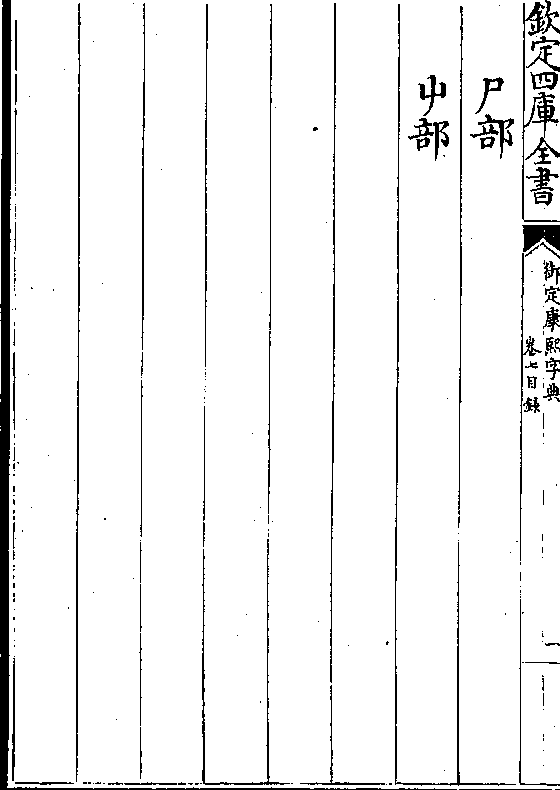 欽定四庫全書
御定康熙字典
卷七目錄
一
尸部
屮部